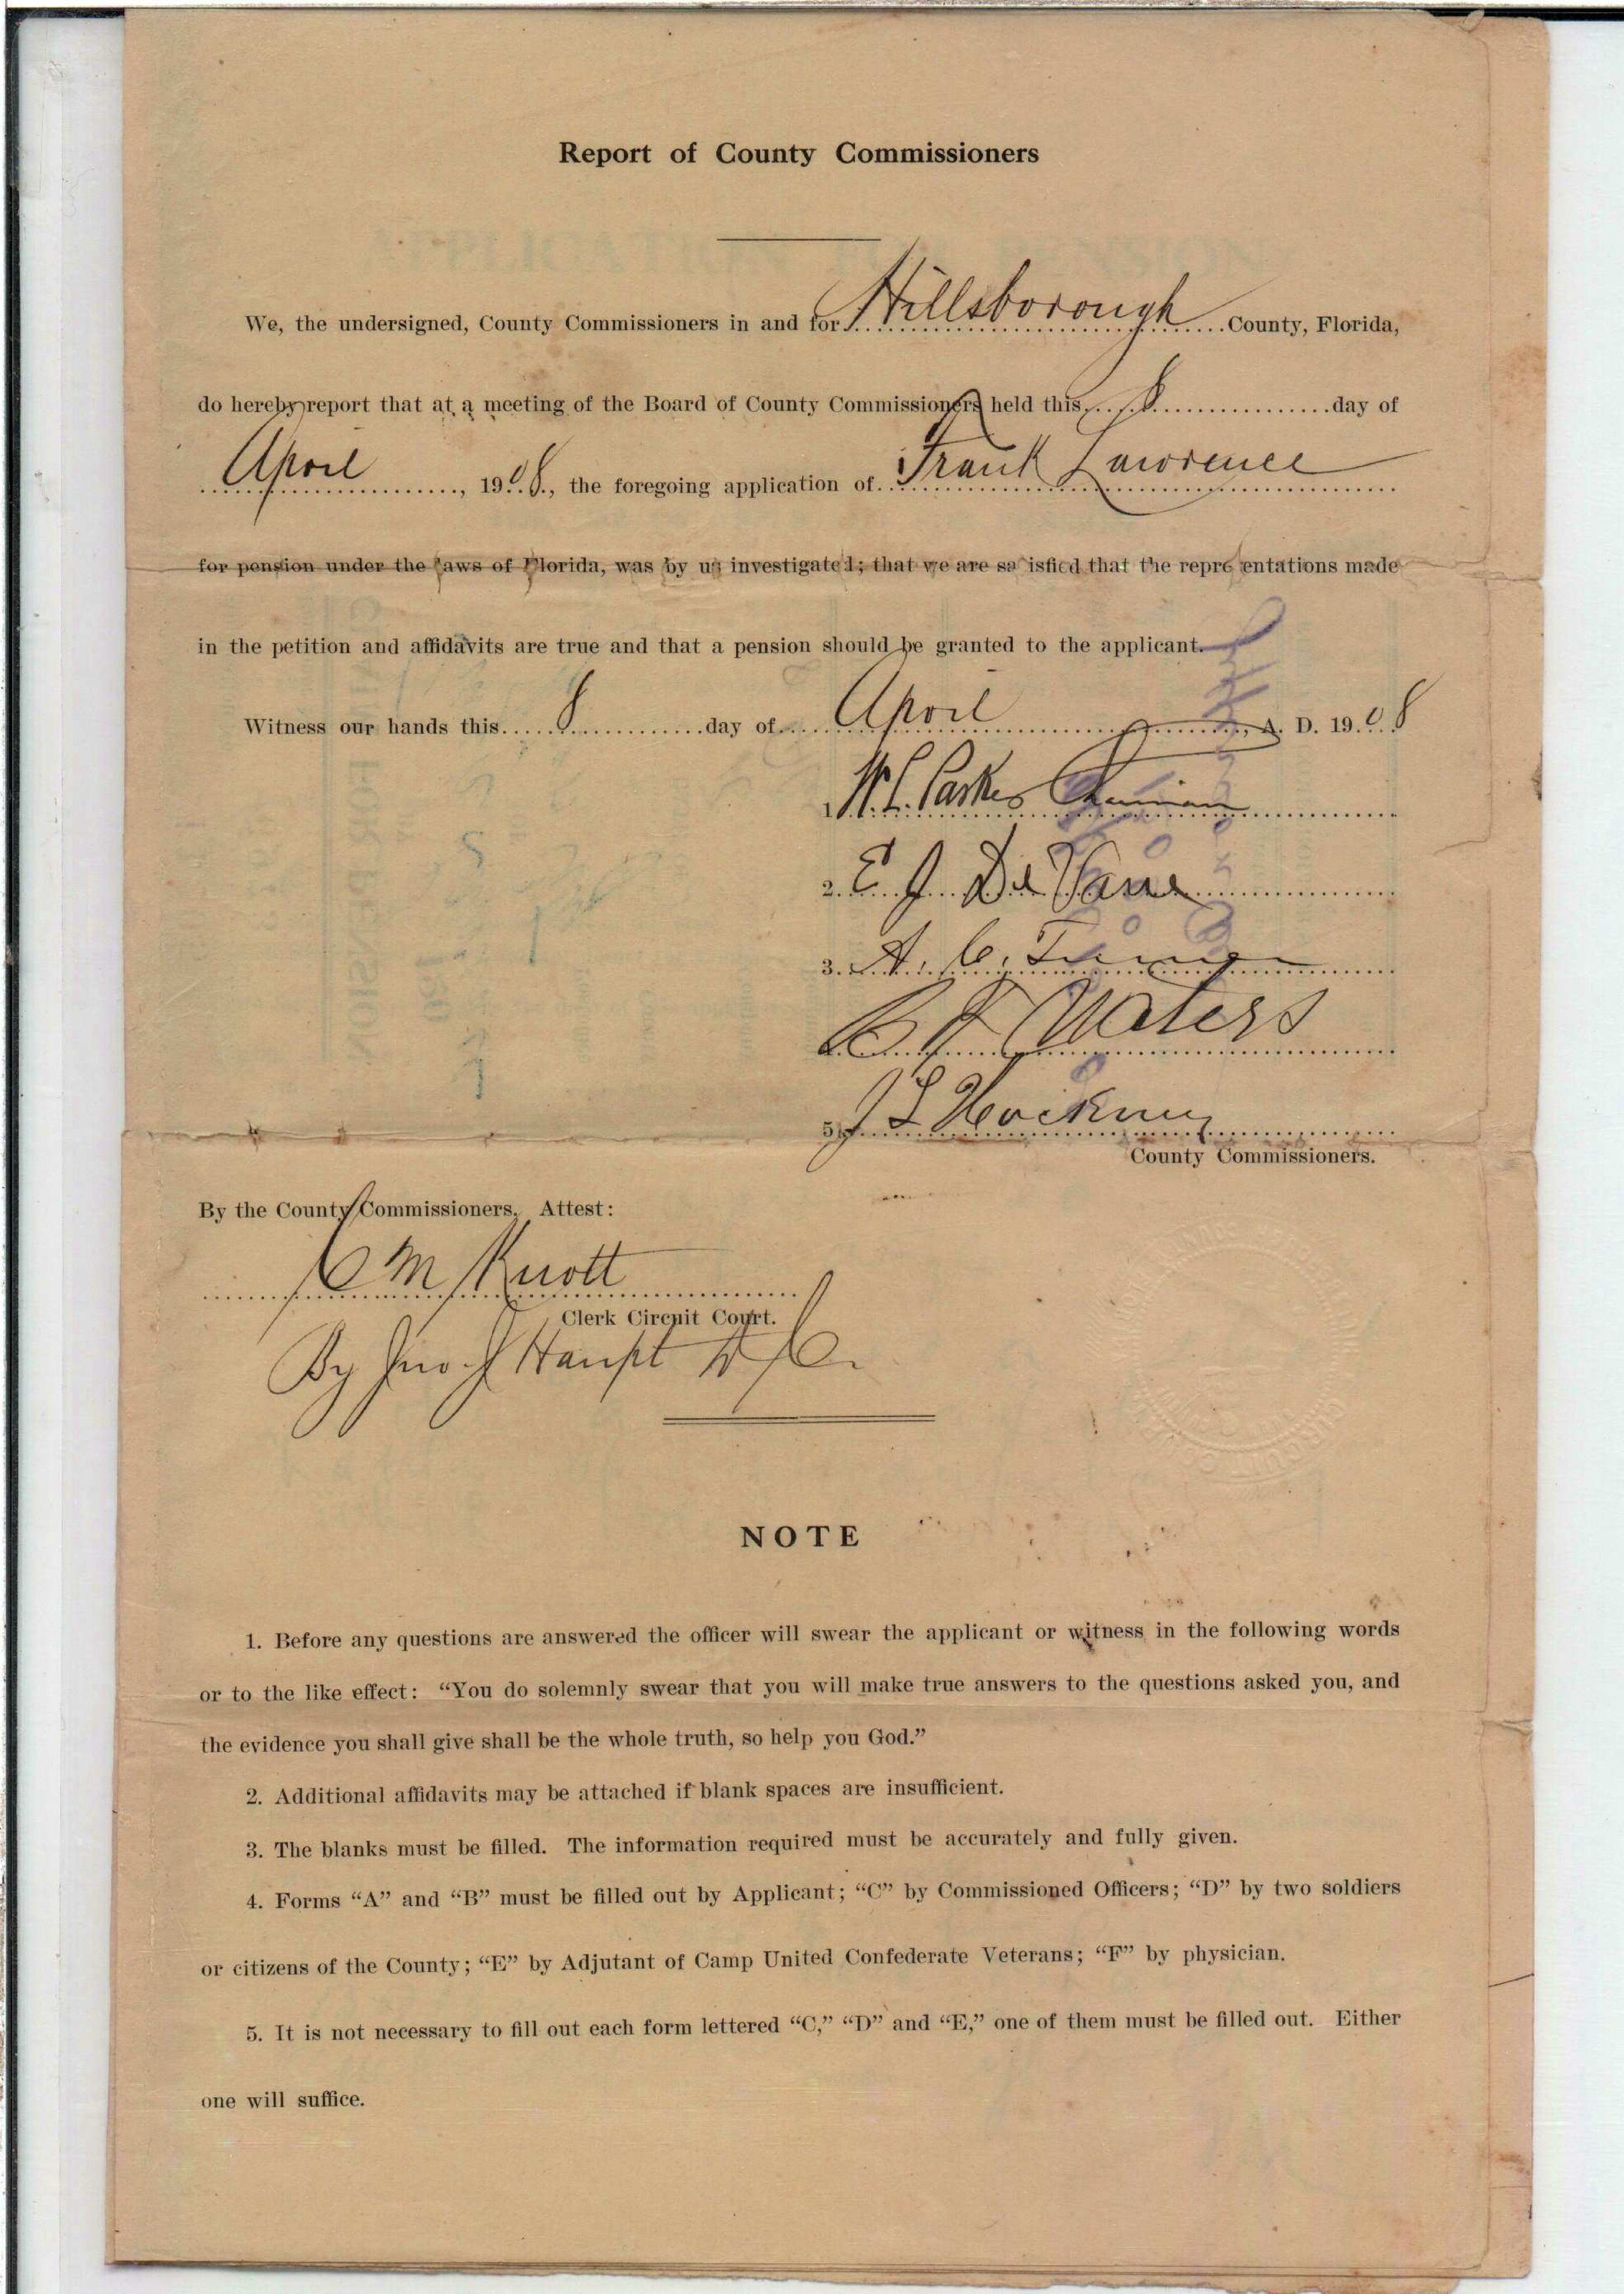 Report of County Commissioners
We, the undersigned, County Commissioners in and for Hillsborough County, Florida,
do hereby report that at a meeting of the Board of County Commissioners held this 8 day of
April, 1908, the foregoing application of Frank Lawrence
for pension under the laws of Florida, was by us investigated; that we are satisfied that the representations made
in the petition and affidavits are true and that a pension should be granted to the applicant.
Witness our hands this 8 day of April, A. D. 1908
1. W. L. Parker Chairman
2. E. J. De Vane
3. A. C.
Waters
5. J L
County Commissioners.
By the County Commissioners, Attest:
C M Knott
Clerk Circuit Court.
By Jno. J Haupt D C.
NOTE
1. Before any questions are answered the officer will swear the applicant or witness in the following words
or to the like effect: “You do solemnly swear that you will make true answers to the questions asked you, and
the evidence you shall give shall be the whole truth, so help you God.”
2. Additional affidavits may be attached if blank spaces are insufficient.
3. The blanks must be filled. The information required must be accurately and fully given.
4. Forms “A” and “B” must be filled out by Applicant; “C” by Commissioned Officers; “D” by two soldiers
or citizens of the County; “E” by Adjutant of Camp United Confederate Veterans; “F” by physician.
5. It is not necessary to fill out each form lettered “C,” “D” and “E,” one of them must be filled out. Either
one will suffice.